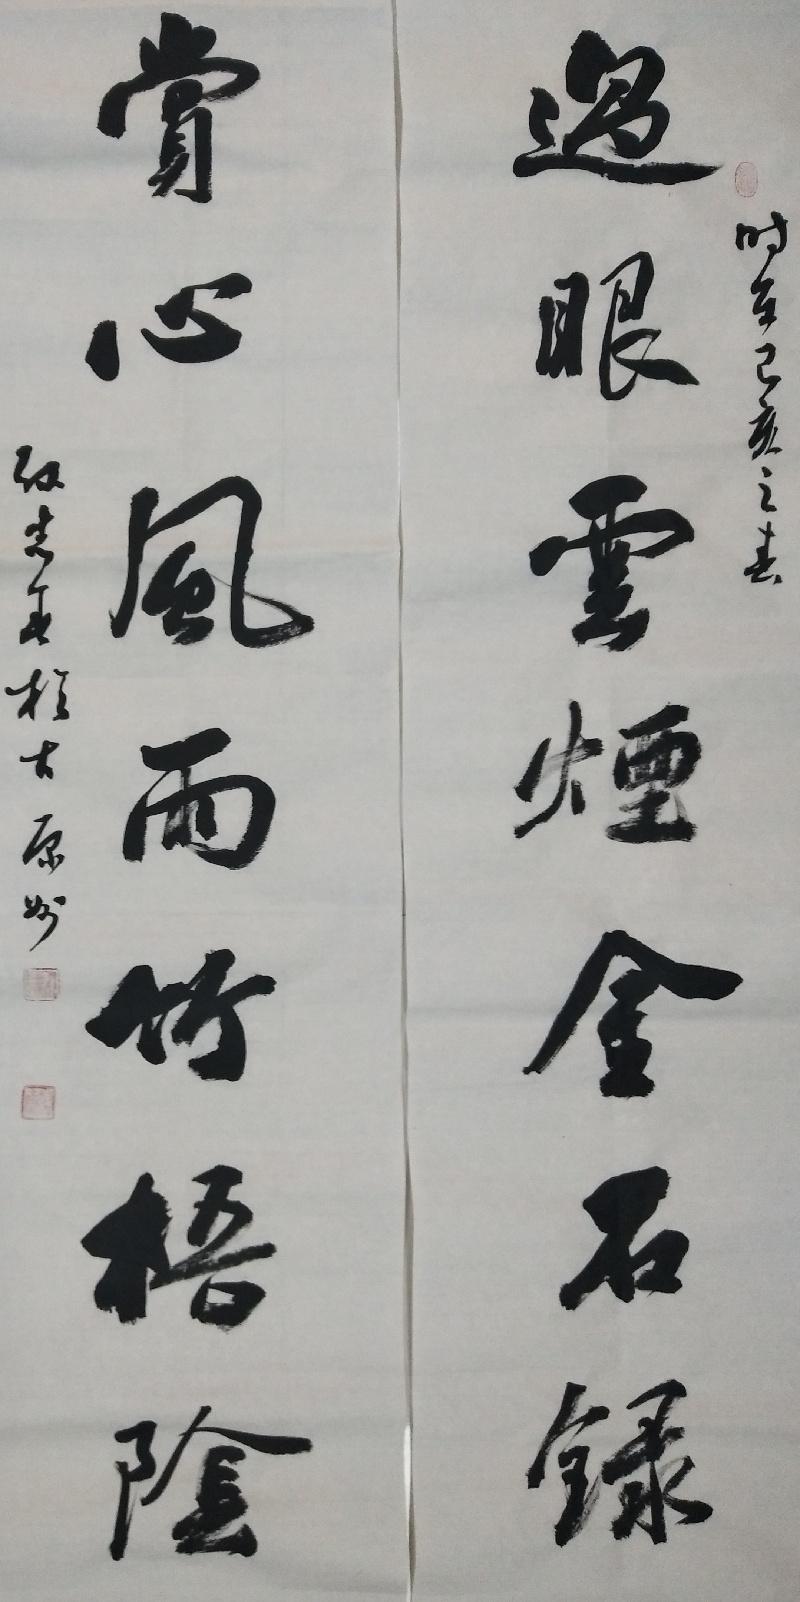 時在己亥之春
過眼雲煙金石録
賞心風雨竹梧陰
志書於古原州